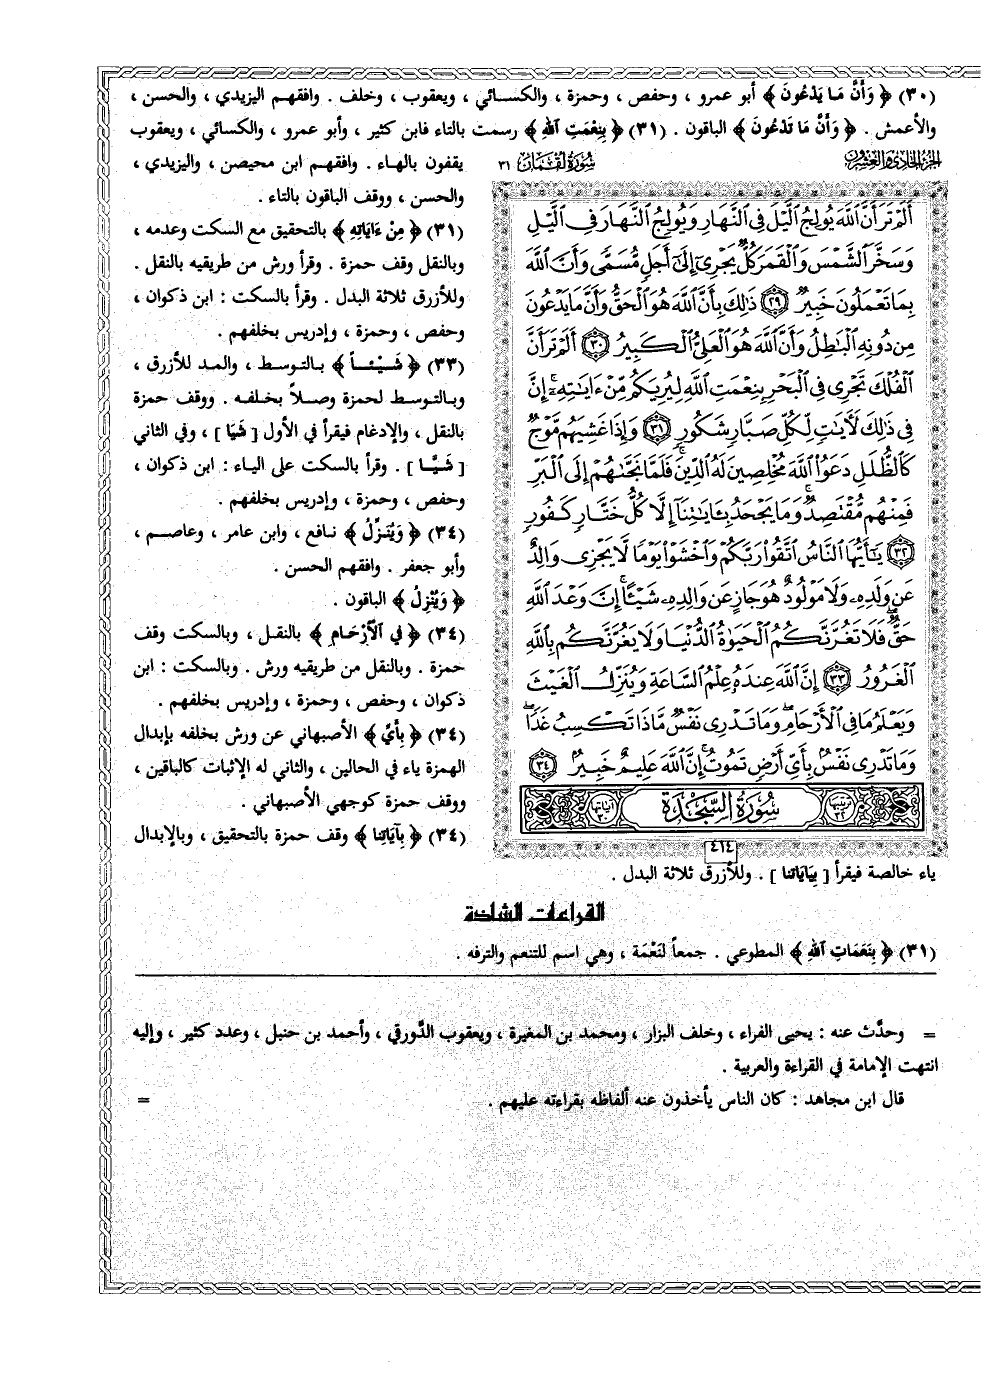 (٣٠) ﴿ وَأَنَّ مَا يَدْعُونَ ﴾ أبو عمرو ، وحفص ، وحمزة ، والكسائي ، ويعقوب ، وخلف . وافقهم اليزيدي ، والحسن ،
والأعمش . ﴿ وَأَنَّ مَا تَدْعُونَ ﴾ الباقون . (٣١) ﴿ بِنِعْمَتِ اللهِ ﴾ رسمت بالتاء فابن كثير ، وأبو عمرو ، والكسائي ، ويعقوب
يقفون بالهاء . وافقهم ابن محيصن ، واليزيدي ،
والحسن ، ووقف الباقون بالتاء .
(٣١) ﴿ مِنْ ءَايَاتِهِ ﴾ بالتحقيق مع السكت وعدمه ،
وبالنقل وقف حمزة . وقرأ ورش من طريقيه بالنقل .
وللأزرق ثلاثة البدل . وقرأ بالسكت : ابن ذكوان ،
وحفص ، وحمزة ، وإدريس بخلفهم .
(٣٣) ﴿ شَيْئاً ﴾ بالتوسط ، والمد للأزرق ،
وبالتوسط لحمزة وصلاً بخلفه . ووقف حمزة
بالنقل ، والإدغام فيقرأ في الأول [ شَيَا ] ، وفي الثاني
[ شَيًّا ] . وقرأ بالسكت على الياء : ابن ذكوان ،
وحفص ، وحمزة ، وإدريس بخلفهم .
(٣٤) ﴿ وَيُنَزِّلُ ﴾ نافع ، وابن عامر ، وعاصم ،
وأبو جعفر . وافقهم الحسن .
﴿ وَيُنْزِلُ ﴾ الباقون .
(٣٤) ﴿ فِي الْأَرْحَامِ ﴾ بالنقل ، وبالسكت وقف
حمزة . وبالنقل من طريقيه ورش . وبالسكت : ابن
ذكوان ، وحفص ، وحمزة ، وإدريس بخلفهم .
(٣٤) ﴿ بِأَيِّ ﴾ الأصبهاني عن ورش بخلفه بإبدال
الهمزة ياء في الحالين ، والثاني له الإثبات كالباقين ،
ووقف حمزة كوجهي الأصبهاني .
(٣٤) ﴿ بِآيَاتِنَا ﴾ وقف حمزة بالتحقيق ، وبالإبدال
الجزء الحادي والعشرون
سورة لقمان ٣١
أَلَمْ تَرَ أَنَّ ٱللَّهَ يُولِجُ ٱلَّيْلَ فِى ٱلنَّهَارِ وَيُولِجُ ٱلنَّهَارَ فِى ٱلَّيْلِ
وَسَخَّرَ ٱلشَّمْسَ وَٱلْقَمَرَ كُلٌّ يَجْرِىٓ إِلَىٰٓ أَجَلٍ مُّسَمًّى وَأَنَّ ٱللَّهَ
بِمَا تَعْمَلُونَ خَبِيرٌ ٢٩ ذَٰلِكَ بِأَنَّ ٱللَّهَ هُوَ ٱلْحَقُّ وَأَنَّ مَا يَدْعُونَ
مِن دُونِهِ ٱلْبَٰطِلُ وَأَنَّ ٱللَّهَ هُوَ ٱلْعَلِىُّ ٱلْكَبِيرُ ٣٠ أَلَمْ تَرَ أَنَّ
ٱلْفُلْكَ تَجْرِى فِى ٱلْبَحْرِ بِنِعْمَتِ ٱللَّهِ لِيُرِيَكُم مِّنْ ءَايَٰتِهِۦٓ ۚ إِنَّ
فِى ذَٰلِكَ لَءَايَٰتٍ لِّكُلِّ صَبَّارٍ شَكُورٍ ٣١ وَإِذَا غَشِيَهُم مَّوْجٌ
كَٱلظُّلَلِ دَعَوُا۟ ٱللَّهَ مُخْلِصِينَ لَهُ ٱلدِّينَ فَلَمَّا نَجَّىٰهُمْ إِلَى ٱلْبَرِّ
فَمِنْهُم مُّقْتَصِدٌ ۚ وَمَا يَجْحَدُ بِـَٔايَٰتِنَآ إِلَّا كُلُّ خَتَّارٍ كَفُورٍ
٣٢ يَٰٓأَيُّهَا ٱلنَّاسُ ٱتَّقُوا۟ رَبَّكُمْ وَٱخْشَوْا۟ يَوْمًا لَّا يَجْزِى وَالِدٌ
عَن وَلَدِهِۦ وَلَا مَوْلُودٌ هُوَ جَازٍ عَن وَالِدِهِۦ شَيْـًٔا ۚ إِنَّ وَعْدَ ٱللَّهِ
حَقٌّ ۖ فَلَا تَغُرَّنَّكُمُ ٱلْحَيَوٰةُ ٱلدُّنْيَا وَلَا يَغُرَّنَّكُم بِٱللَّهِ
ٱلْغَرُورُ ٣٣ إِنَّ ٱللَّهَ عِندَهُۥ عِلْمُ ٱلسَّاعَةِ وَيُنَزِّلُ ٱلْغَيْثَ
وَيَعْلَمُ مَا فِى ٱلْأَرْحَامِ ۖ وَمَا تَدْرِى نَفْسٌ مَّاذَا تَكْسِبُ غَدًا ۖ
وَمَا تَدْرِى نَفْسٌۢ بِأَىِّ أَرْضٍ تَمُوتُ ۚ إِنَّ ٱللَّهَ عَلِيمٌ خَبِيرٌ ٣٤
ترتيبها ٣٢ سُورَةُ السَّجْدَةِ آياتها ٣٠
٤١٤
ياء خالصة فيقرأ [ بِيَايَاتِنا ] . وللأزرق ثلاثة البدل .
القراءات الشاذة
(٣١) ﴿ بِنَعَمَاتِ اللهِ ﴾ المطوعي . جمعاً لنَعْمَة ، وهي اسم للتنعم والترفه .
= وحدَّث عنه : يحيى الفراء ، وخلف البزار ، ومحمد بن المغيرة ، ويعقوب الدَّورقي ، وأحمد بن حنبل ، وعدد كثير ، وإليه
انتهت الإمامة في القراءة والعربية .
قال ابن مجاهد : كان الناس يأخذون عنه ألفاظه بقراءته عليهم . =